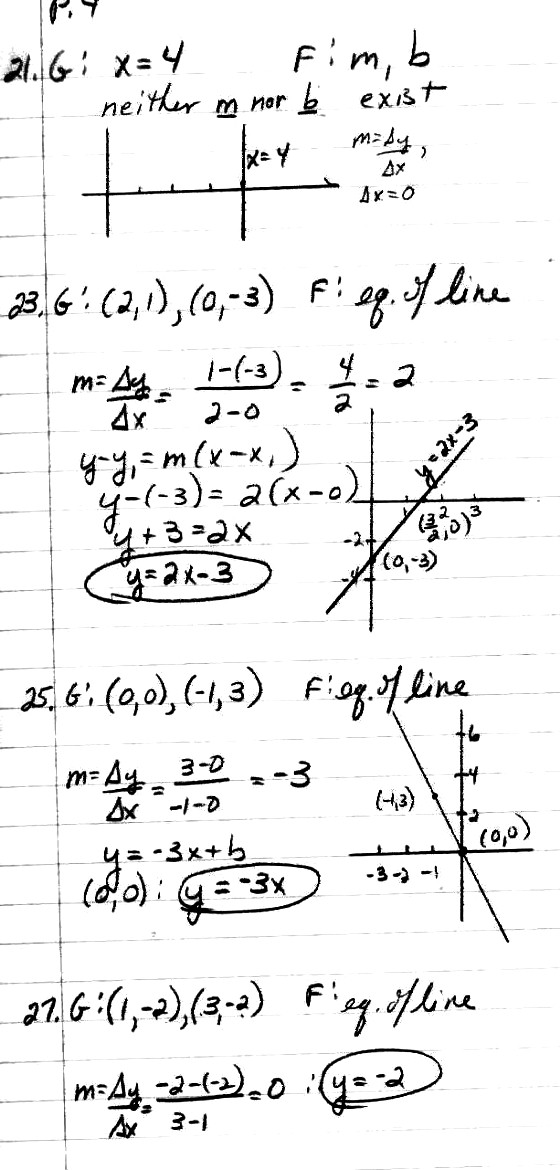 P. 4
21. G: x = 4 F: m, b
neither m nor b exist
x = 4
m = Δy/Δx,
Δx = 0
23. G: (2,1), (0,-3) F: eq. of line
m = Δy/Δx = 1-(-3)/2-0 = 4/2 = 2
y-y₁ = m(x-x₁)
y-(-3) = 2(x-0)
y+3 = 2x
y = 2x-3
y = 2x-3
2 3
(3/2, 0)
-2
(0,-3)
-4
25. G: (0,0), (-1,3) F: eq. of line
m = Δy/Δx = 3-0/-1-0 = -3
y = -3x+b
(0,0): y = -3x
6
4
(-1,3)
2
(0,0)
-3 -2 -1
27. G: (1,-2), (3,-2) F: eq. of line
m = Δy/Δx = -2-(-2)/3-1 = 0 ∴ y = -2